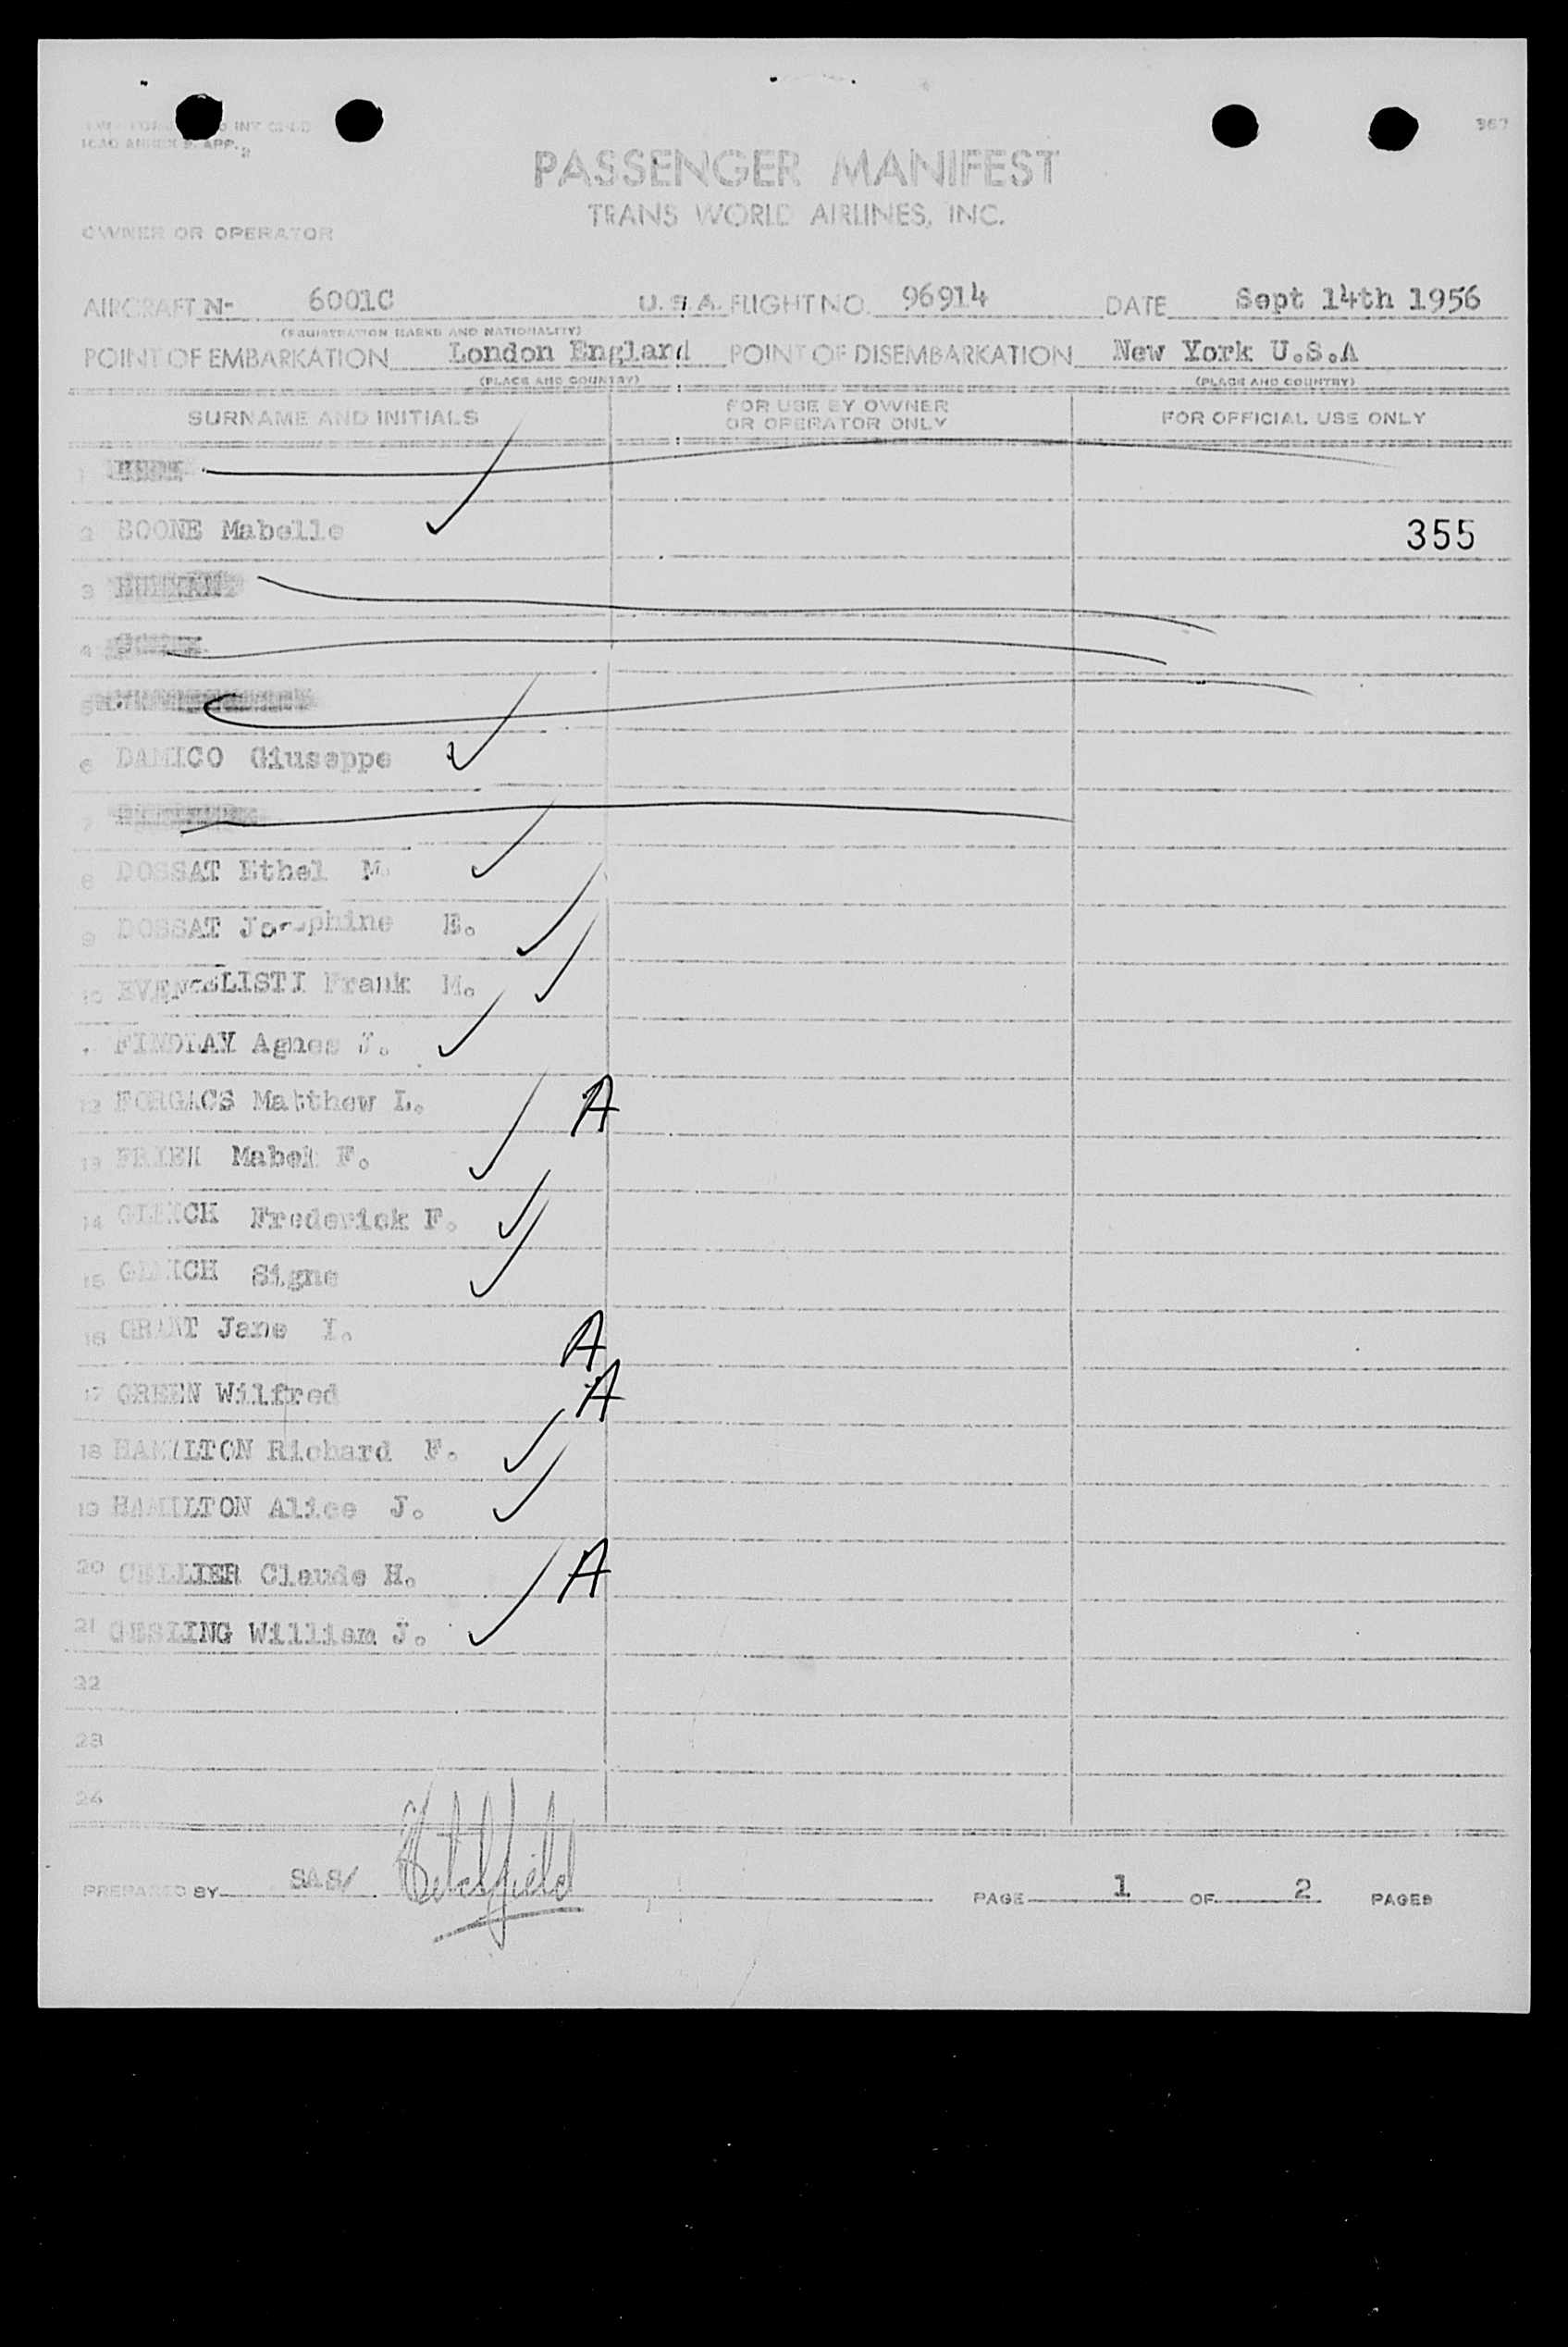 367
ICAO ANNEX 9, APP. 2
PASSENGER MANIFEST
TRANS WORLD AIRLINES, INC.
OWNER OR OPERATOR
AIRCRAFT N- 6001C U.S.A. FLIGHT NO. 96914 DATE Sept 14th 1956
(REGISTRATION MARKS AND NATIONALITY)
POINT OF EMBARKATION London England POINT OF DISEMBARKATION New York U.S.A
(PLACE AND COUNTRY) (PLACE AND COUNTRY)
SURNAME AND INITIALS FOR USE BY OWNER OR OPERATOR ONLY FOR OFFICIAL USE ONLY
1
2 BOONE Mabelle 355
3
4
5
6 DAMICO Giuseppe
7
8 DOSSAT Ethel M.
9 DOSSAT Josephine E.
10 EVANGELISTI Frank M.
FINDLAY Agnes J.
12 FORGACS Matthew L. A
13 Mabel F.
14 Frederick F.
15 Signe
16 GRANT Jane I. A
17 GREEN Wilfred A
18 HAMILTON Richard F.
19 HAMILTON Alice J.
20 CELLIER Claude H. A
21 William J.
22
23
24
PREPARED BY SAS/ PAGE 1 OF 2 PAGES